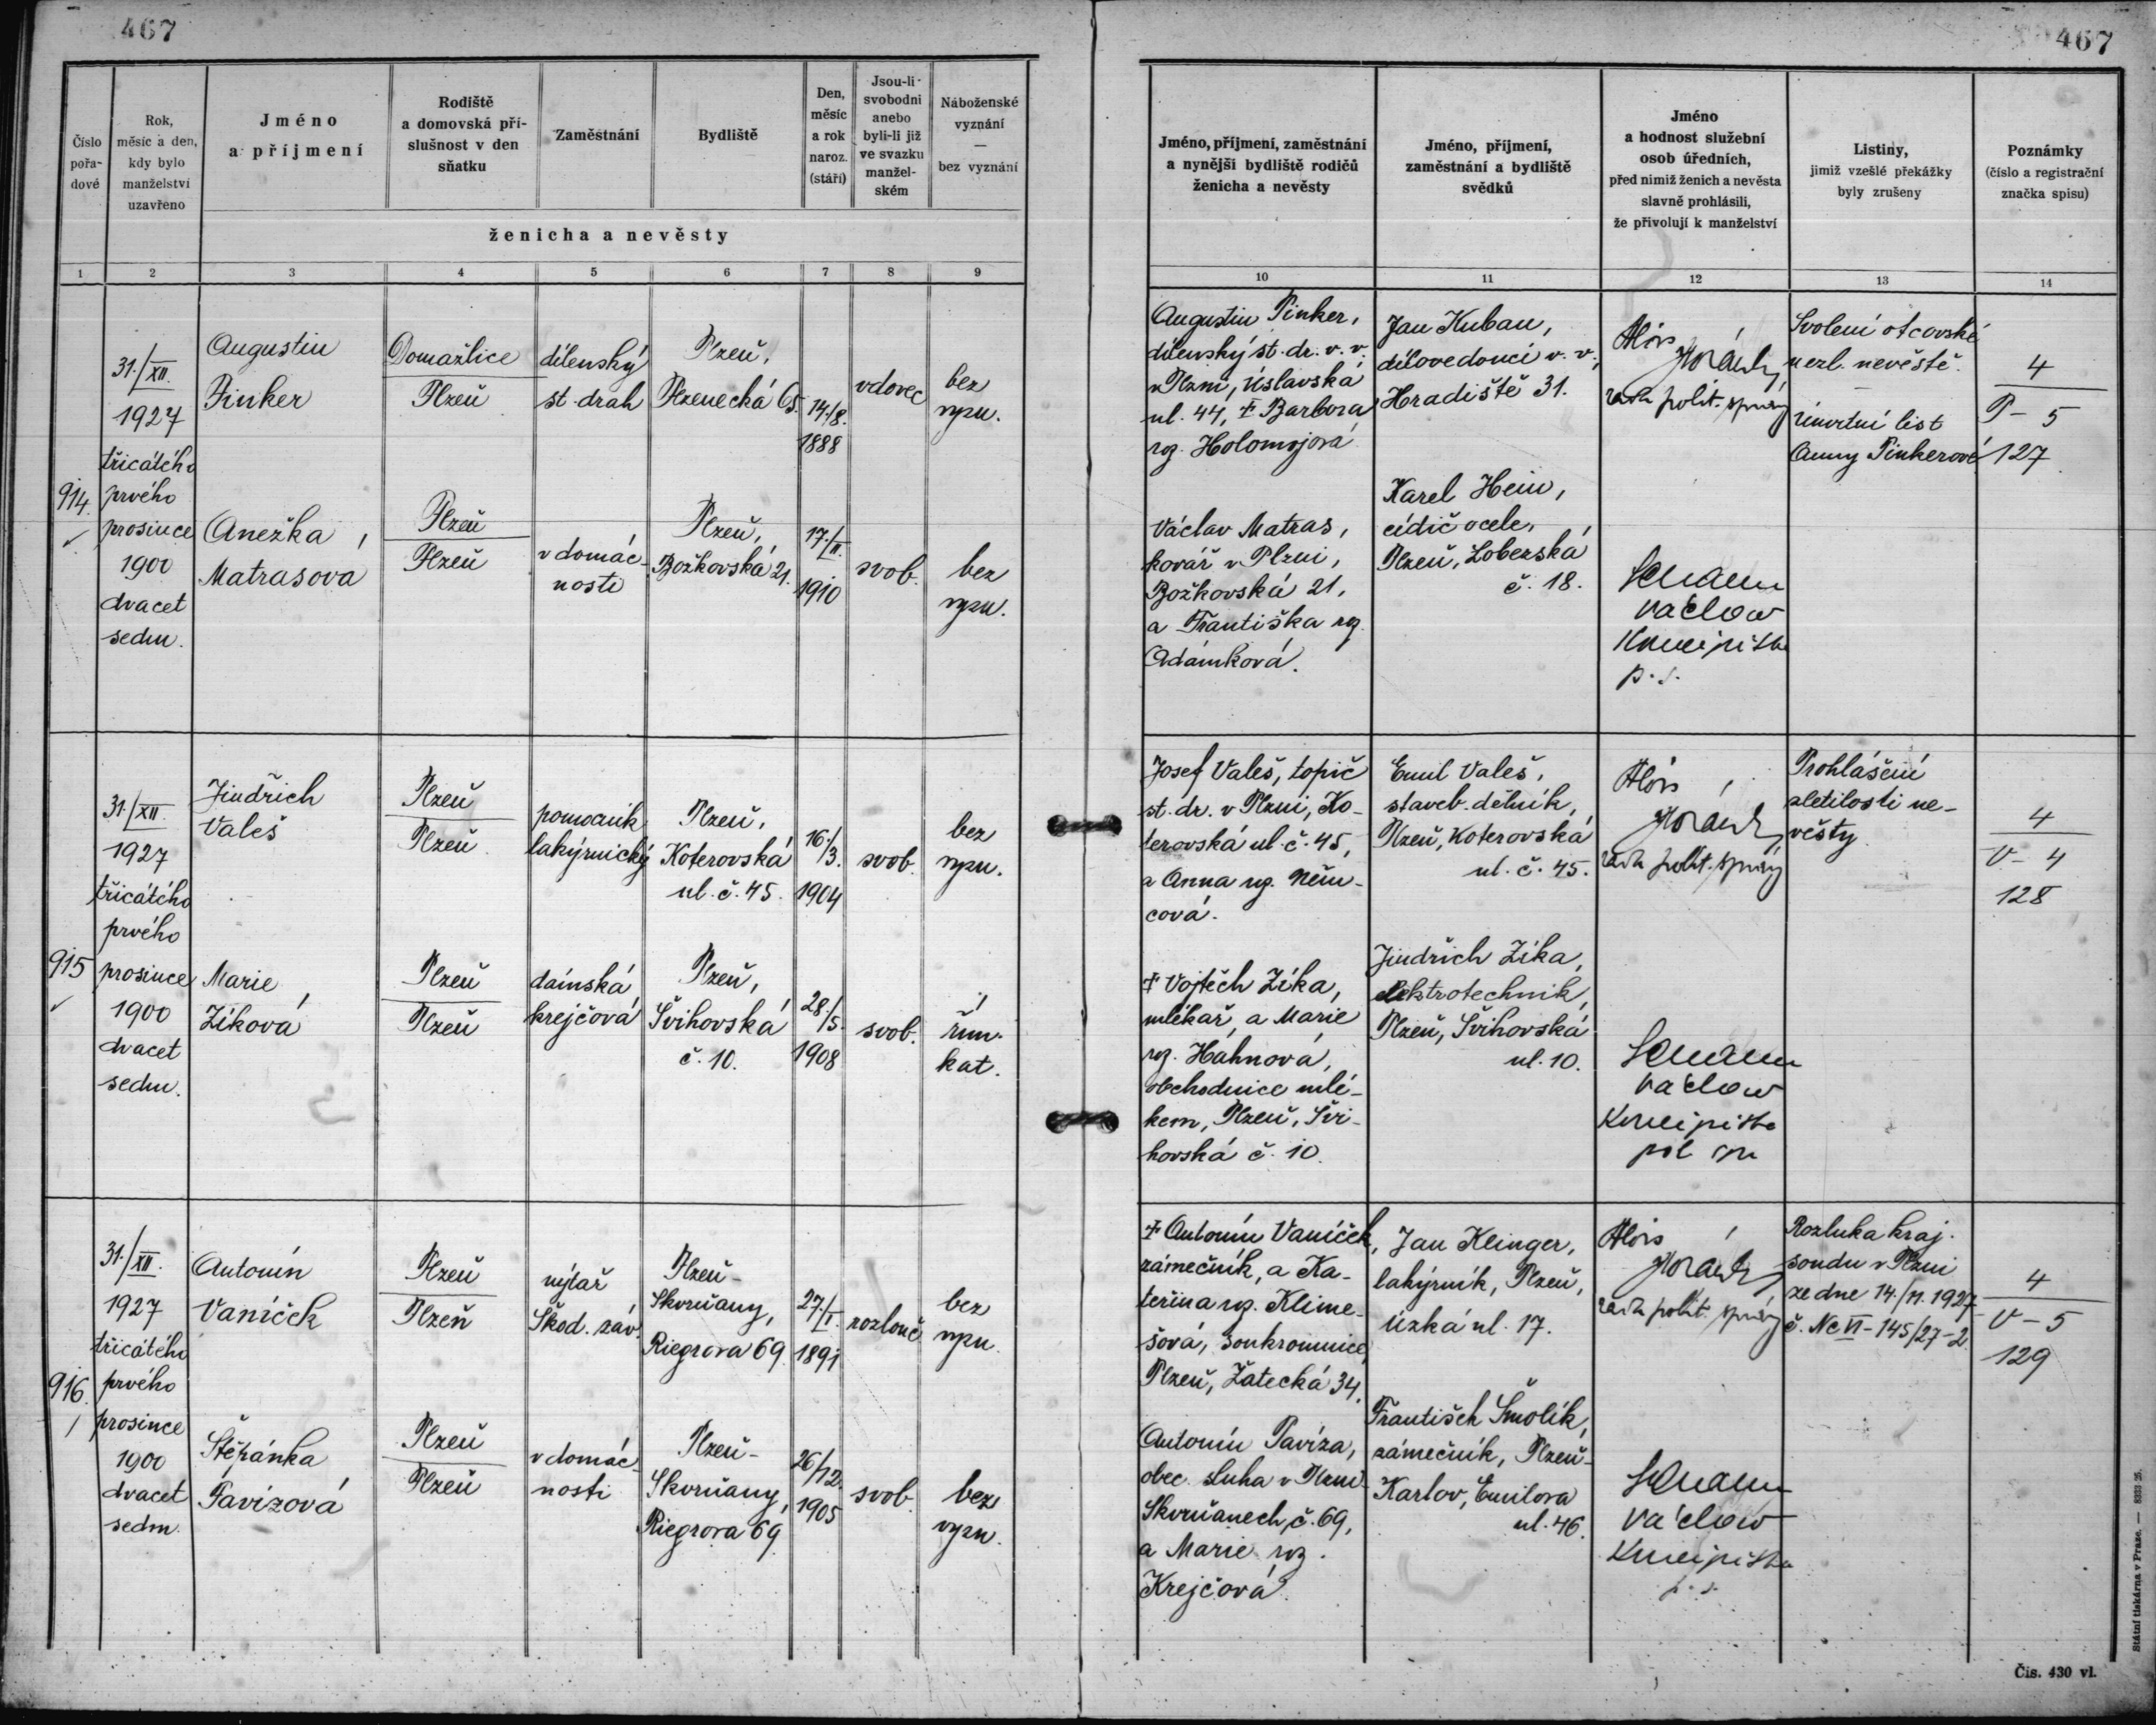 467
467
Číslo
pořa-
dové
Rok,
měsíc a den,
kdy bylo
manželství
uzavřeno
Jméno
a příjmení
Rodiště
a domovská pří-
slušnost v den
sňatku
Zaměstnání
Bydliště
Den,
měsíc
a rok
naroz.
(stáří)
Jsou-li
svobodni
anebo
byli-li již
ve svazku
manžel-
ském
Náboženské
vyznání
—
bez vyznání
ženicha a nevěsty
1 2 3 4 5 6 7 8 9
Jméno, příjmení, zaměstnání
a nynější bydliště rodičů
ženicha a nevěsty
Jméno, příjmení,
zaměstnání a bydliště
svědků
Jméno
a hodnost služební
osob úředních,
před nimiž ženich a nevěsta
slavně prohlásili,
že přivolují k manželství
Listiny,
jimiž vzešlé překážky
byly zrušeny
Poznámky
(číslo a registrační
značka spisu)
10 11 12 13 14
914.
31./XII.
1927
třicátého
prvého
prosince
1900
dvacet
sedm.
Augustin
Pinker
Domažlice
Plzeň
dílenský
st. drah
Plzeň,
Plzenecká 65.
14./8.
1888
vdovec
bez
vyzn.
Anežka
Matrasová
Plzeň
Plzeň
v domác-
nosti
Plzeň,
Božkovská 21.
17./II.
1910
svob.
bez
vyzn.
Augustin Pinker,
dílenský st. dr. v. v.
v Plzni, Úslavská
ul. 44, † Barbora
roz. Holomojová
Václav Matras,
kovář v Plzni,
Božkovská 21,
a Františka roz.
Adámková.
Jan Kuban,
dílovedoucí v. v.,
Hradiště 31.
Karel Hein,
cídič ocele,
Plzeň, Lobezská
č. 18.
Alois
Horák,
rada polit. správy
Václav
p. s.
Svolení otcovské
nezl. nevěstě.
úmrtní list
Anny Pinkerové
4
P - 5
127
915
31./XII.
1927
třicátého
prvého
prosince
1900
dvacet
sedm.
Jindřich
Valeš
Plzeň
Plzeň
pomocník
lakýrnický
Plzeň,
Koterovská
ul. č. 45.
16./3.
1904
svob.
bez
vyzn.
Marie
Zíková
Plzeň
Plzeň
dámská
krejčová
Plzeň,
Švihovská
č. 10.
28./5.
1908
svob.
řím.
kat.
Josef Valeš, topič
st. dr. v Plzni, Ko-
terovská ul. č. 45,
a Anna roz. Něm-
cová.
† Vojtěch Zíka,
mlékař, a Marie
roz. Hahnová,
obchodnice mlé-
kem, Plzeň, Švi-
hovská č. 10.
Emil Valeš,
staveb. dělník,
Plzeň, Koterovská
ul. č. 45.
Jindřich Zíka,
elektrotechnik,
Plzeň, Švihovská
ul. 10.
Alois
Horák,
rada polit. správy
Václav
Prohlášení
zletilosti ne-
věsty
4
V - 4
128
916.
31./XII.
1927
třicátého
prvého
prosince
1900
dvacet
sedm.
Antonín
Vaníček
Plzeň
Plzeň
nýtař
Škod. záv.
Plzeň-
Skvrňany,
Riegrova 69.
27./I.
1891
rozlouč.
bez
vyzn.
Štěpánka
Pavízová
Plzeň
Plzeň
v domác-
nosti
Plzeň-
Skvrňany,
Riegrova 69
26/12.
1905
svob.
bez
vyzn.
† Antonín Vaníček,
zámečník, a Ka-
teřina roz. Klime-
šová, soukromnice,
Plzeň, Žatecká 34.
Antonín Pavíza,
obec. sluha v Plzni-
Skvrňanech, č. 69,
a Marie roz.
Krejčová.
Jan Klinger,
lakýrník, Plzeň,
Úzká ul. 17.
František Smolík,
zámečník, Plzeň-
Karlov, Emilova
ul. 46.
Alois
Horák,
rada polit. správy
Václav
Rozluka kraj.
soudu v Plzni
ze dne 14./11. 1927
č. Nc VI - 145/27 - 2.
4
V - 5
129
Státní tiskárna v Praze. — 8333 25.
Čís. 430 vl.